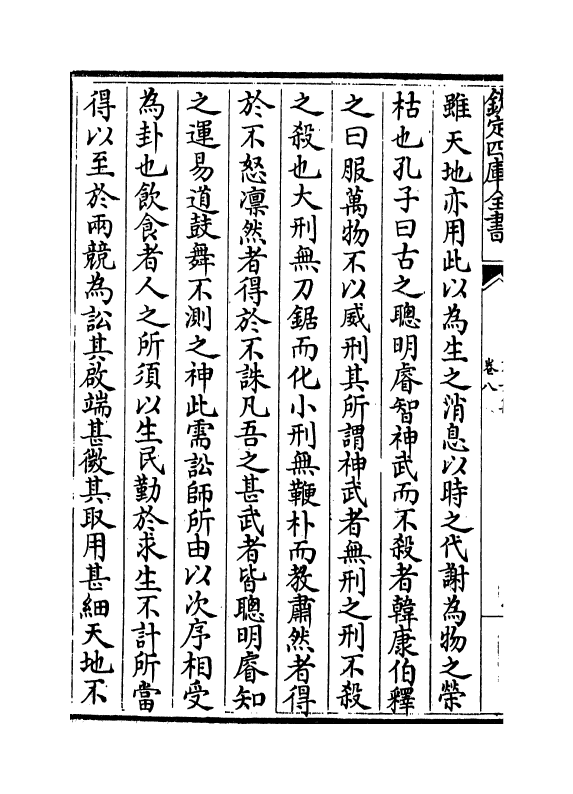 欽定四庫全書
卷八
雖天地亦用此以為生之消息以時之代謝為物之榮
枯也孔子曰古之聰明睿智神武而不殺者韓康伯釋
之曰服萬物不以威刑其所謂神武者無刑之刑不殺
之殺也大刑無刀鋸而化小刑無鞭朴而教肅然者得
於不怒凛然者得於不誅凡吾之甚武者皆聰明睿知
之運易道鼓舞不測之神此需訟師所由以次序相受
為卦也飲食者人之所須以生民勤於求生不計所當
得以至於兩競為訟其啟端甚微其取用甚細天地不